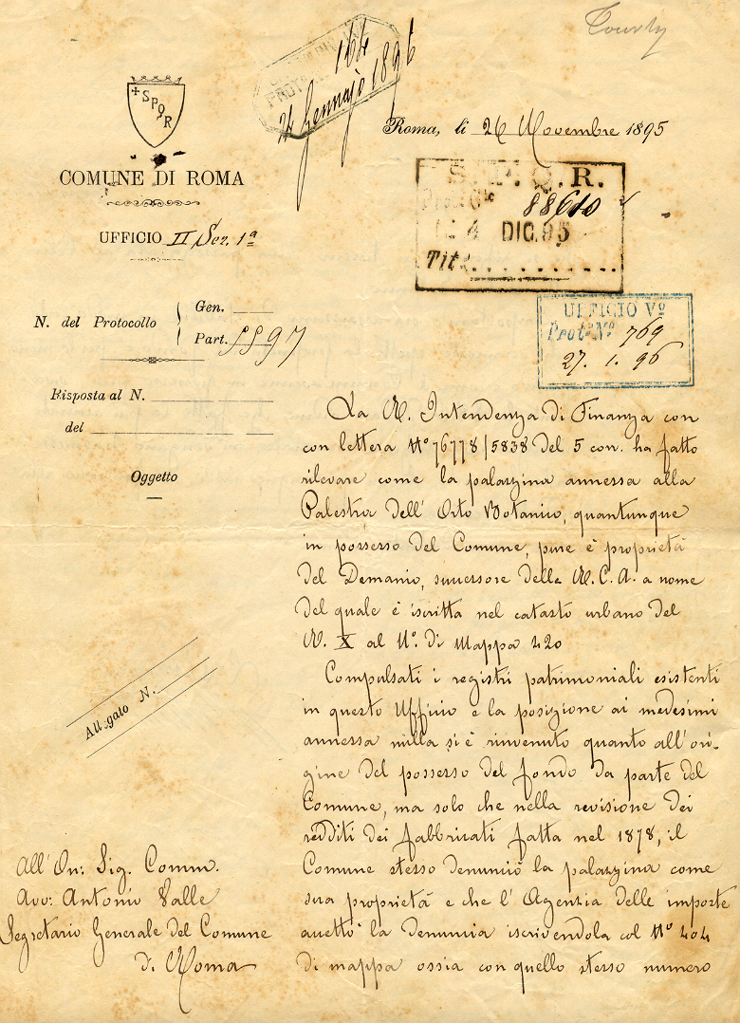 164
24 Gennajo 1896
S P Q R
COMUNE DI ROMA
UFFICIO II Sez. 1ª
Roma, li 26 Novembre 1895
S. P. Q. R.
88610
4 DIC. 95
Tit.
UFFICIO Vº
Protº Nº 769
27. 1. 96
N. del Protocollo
Gen.
Part. 5597
Risposta al N.
del
Oggetto
La R. Intendenza di Finanza con
con lettera Nº 76778/5838 del 5 con. ha fatto
rilevare come la palazzina annessa alla
Palestra dell' Orto Botanico, quantunque
in possesso del Comune, pure è proprietà
del Demanio, successore della R. C. A. a nome
del quale è iscritta nel catasto urbano del
R. X al Nº. di Mappa 420
Compulsati i registri patrimoniali esistenti
in questo Ufficio e la posizione ai medesimi
annessa nulla si è rinvenuto quanto all' ori-
gine del possesso del fondo da parte del
Comune, ma solo che nella revisione dei
redditi dei fabbricati fatta nel 1878, il
Comune stesso denunciò la palazzina come
sua proprietà e che l' Agenzia delle imposte
accettò la denuncia iscrivendola col Nº 404
di mappa ossia con quello stesso numero
Allegato N.
All' On: Sig. Comm.
Avv: Antonio Valle
Segretario Generale del Comune
di Roma